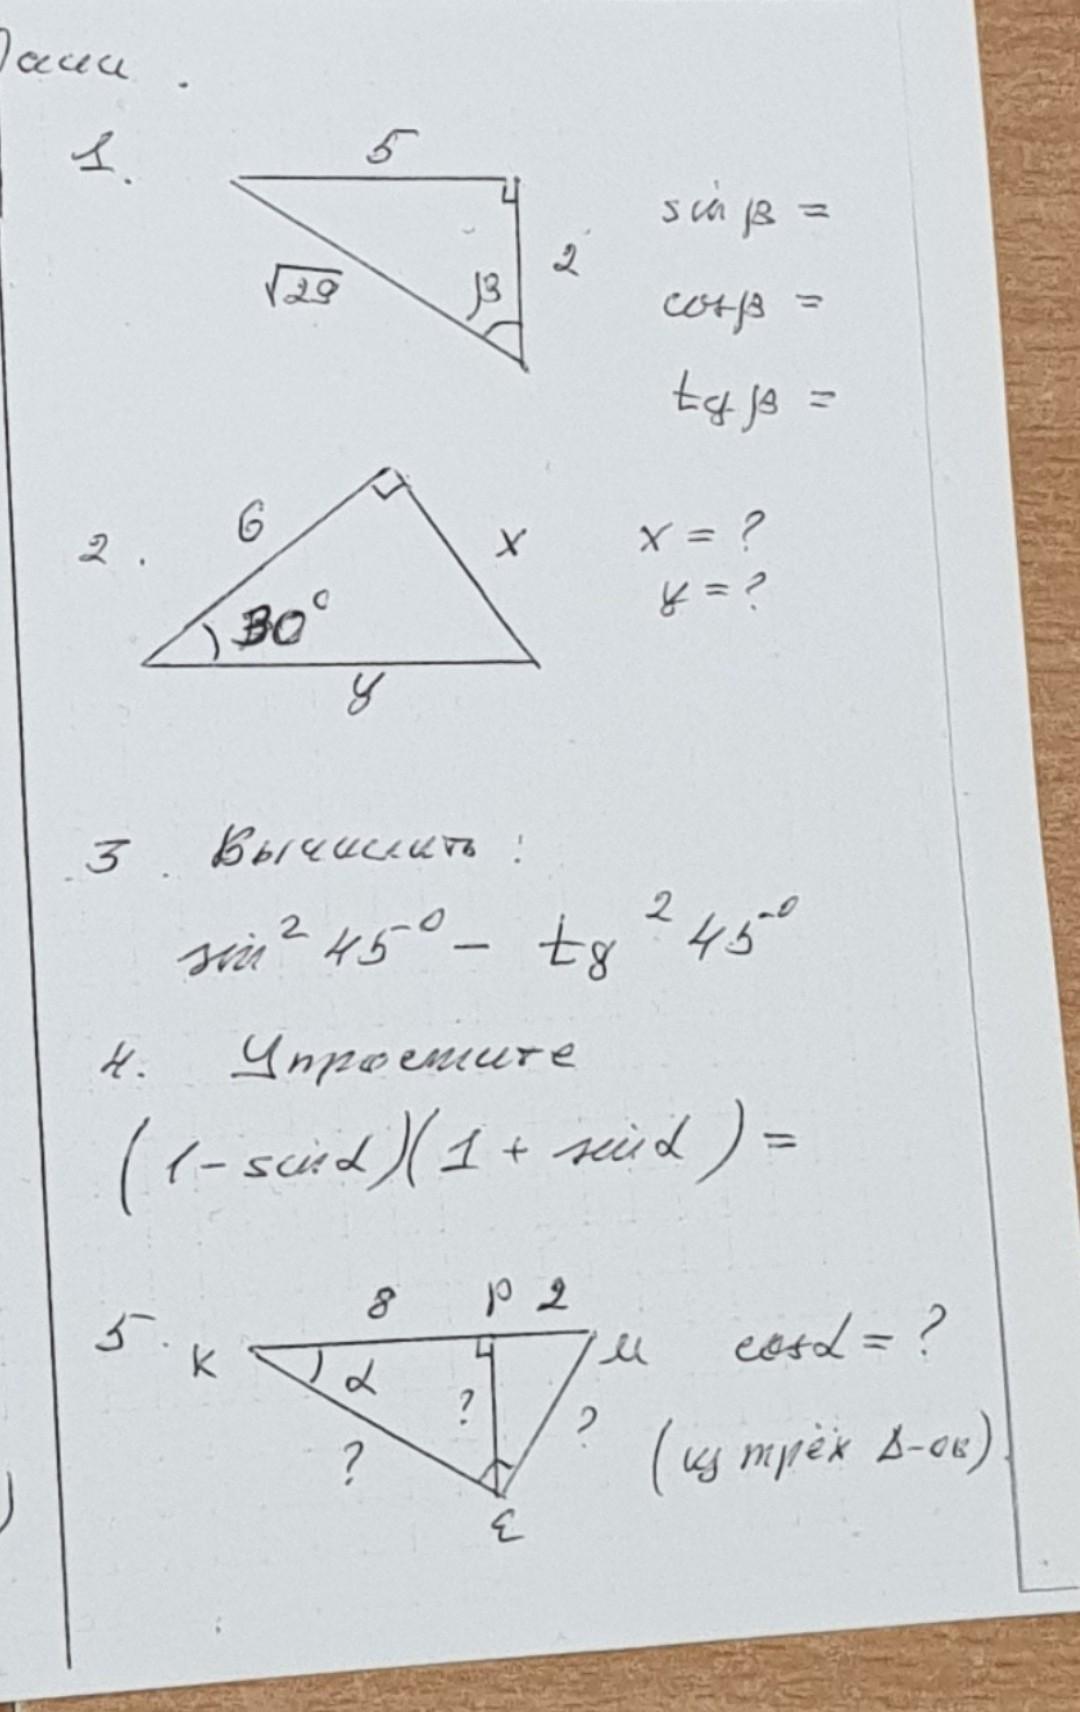 1.
5
sin β =
√29
β
2
cos β =
tg β =
2.
6
x
x = ?
30°
y = ?
y
3. Вычислить:
sin² 45° - tg² 45°
4. Упростите
(1 - sin α)(1 + sin α) =
5.
8 P 2
K
M
cos α = ?
α
?
?
?
(из трёх Δ-ов)
E